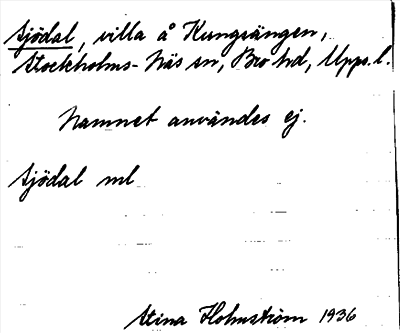 Sjödal, villa å Kungsängen,
Stockholms-Näs sn, Bro hd, Upps. l.
Namnet användes ej.
Sjödal ml
Stina Holmström 1936